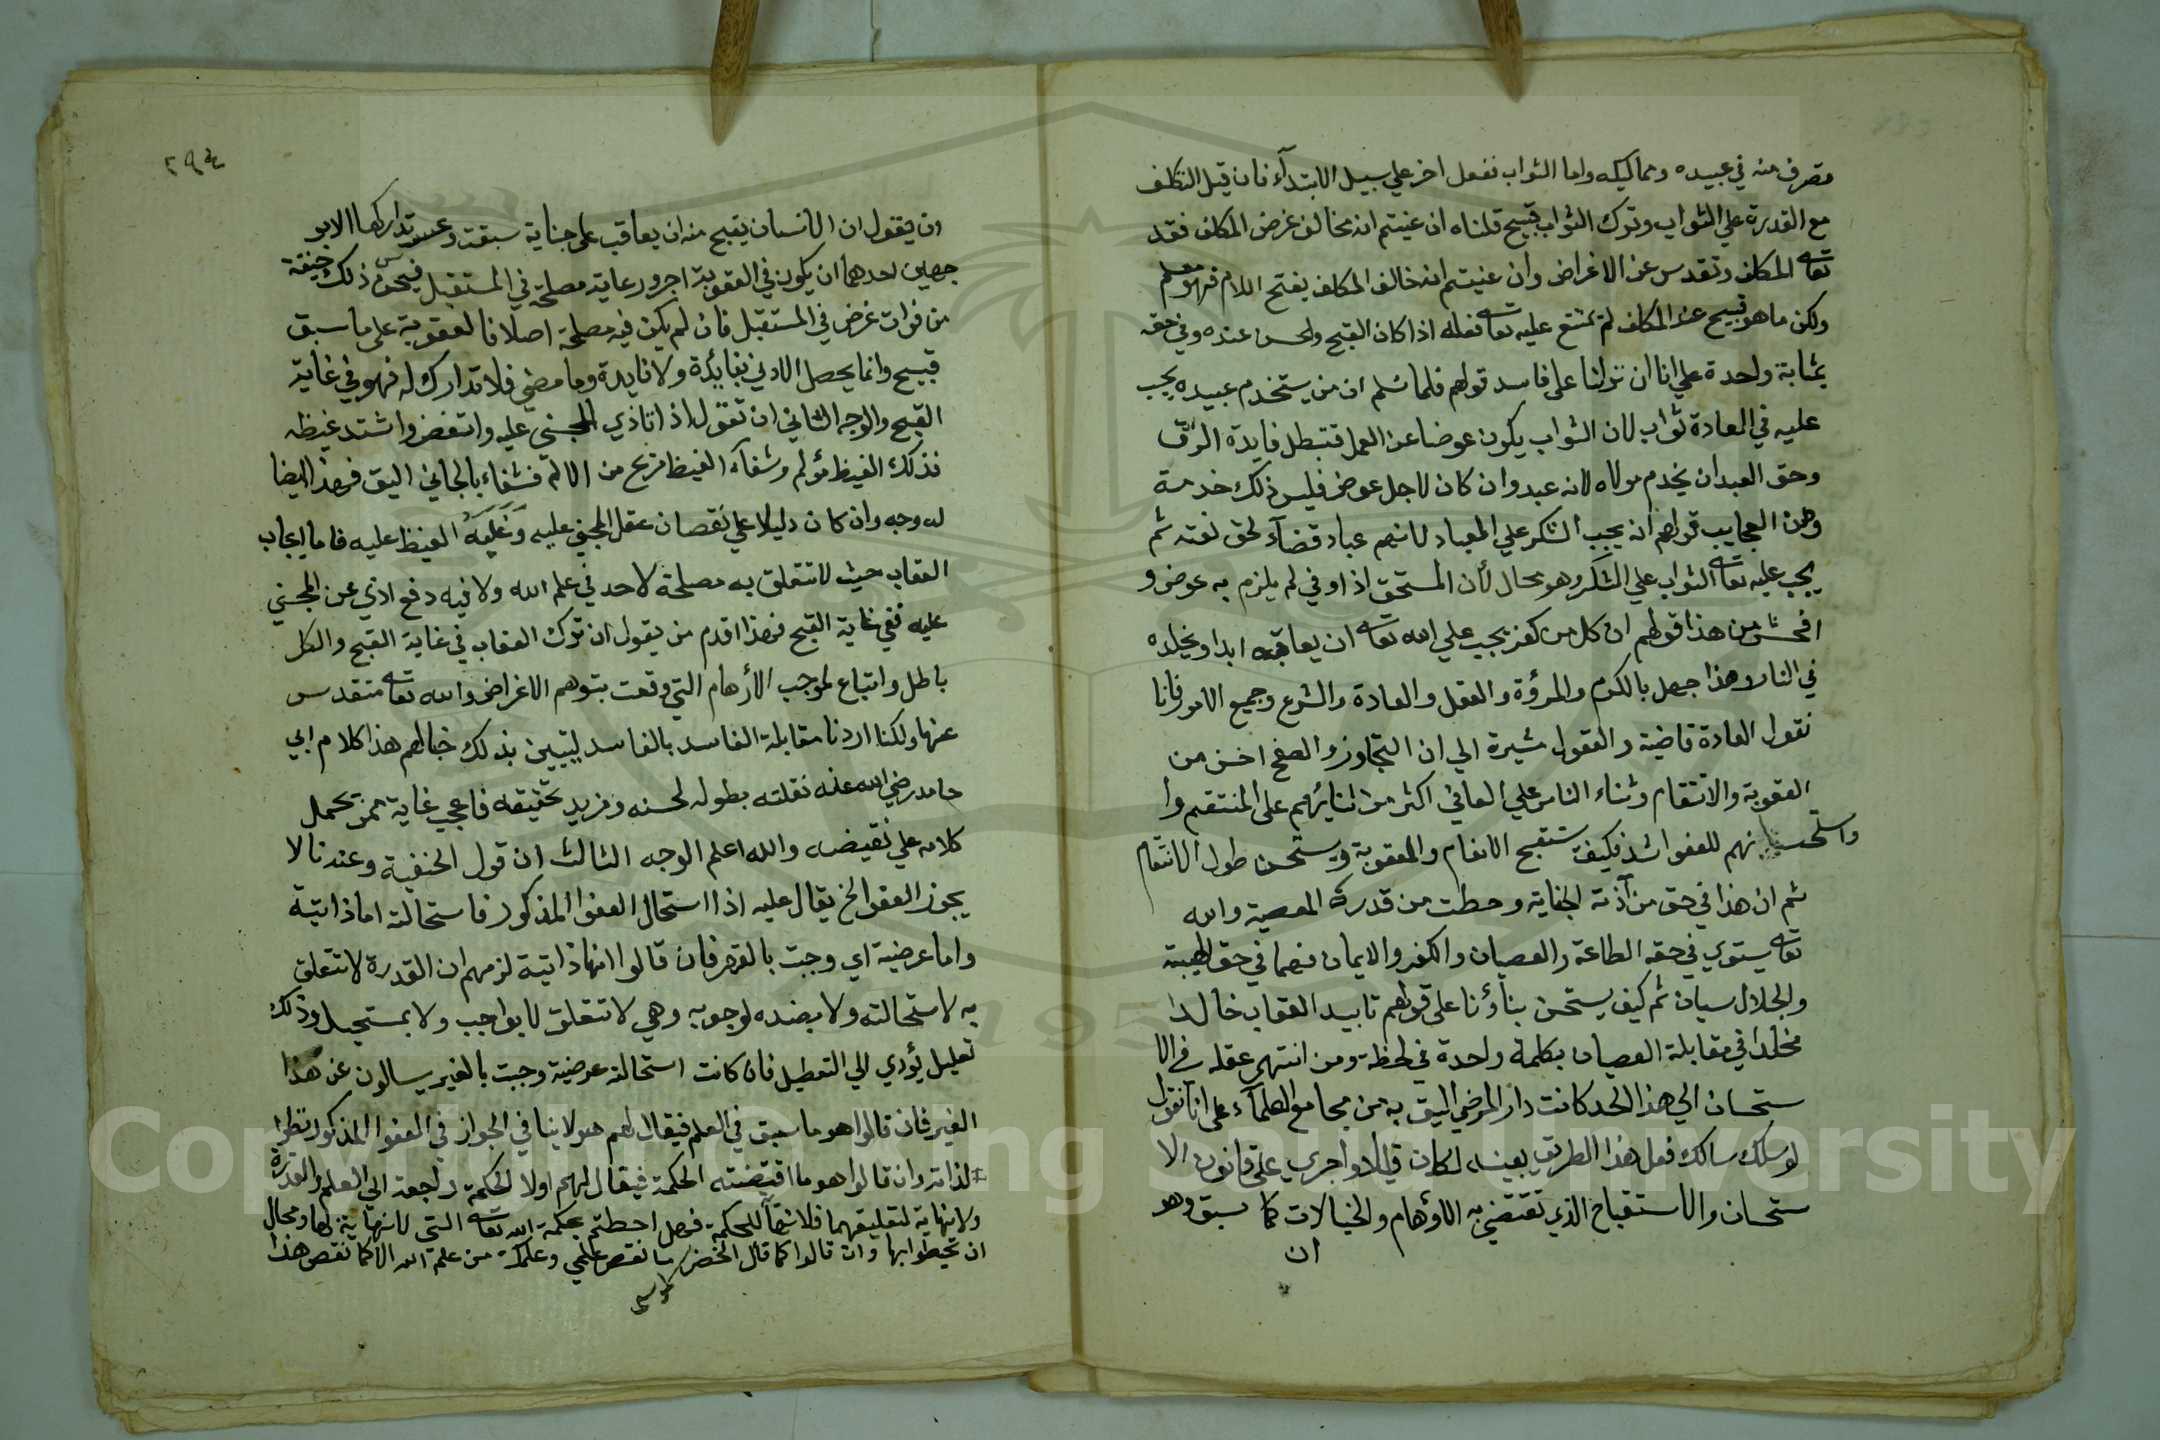 متصرف منه في عبيده ومماليكه واما الثواب نفعل اخر علي سبيل الابتدآء فان قيل التكلف
مع القدرة علي الثواب وترك الثواب قبيح قلناه ان عنيتم انه مخالف غرض المكلف فقد
تعالى المكلف وتقدس عن الاغراض وان عنيتم انه خالف المكلف بفتح اللام فهو مسلم
ولكن ما هو قبيح عند المكلف لم يمتنع عليه تعالى فعله اذا كان القبيح والحسن عنده وفي حقه
بمثابة واحدة علي انا ان نزلنا على فاسد قولهم فلما نسلم ان من يستخدم عبيده يجب
عليه في العادة ثواب لان الثواب يكون عوضا عن العمل فتبطل فايدة الرق
وحق العبد ان يخدم مولاه لانه عبد وان كان لاجل عوض فليس ذلك خدمة
ومن العجايب قولهم انه يجب الشكر علي العباد لانهم عباد قضآء لحق نعمته ثم
يجب عليه تعالى الثواب علي الشكر وهو محال لأن المستحق اذا وفي لم يلزم به عوض و
افحش من هذا قولهم ان كل من كفر يجب علي الله تعالى ان يعاقبه ابدا ويخلده
في النار وهذا جهل بالكرم والمرؤة والعقل والعادة والشرع وجميع الامور فانا
نقول العادة قاضية والعقول مشيرة الي ان التجاوز والصفح احسن من
العقوبة والانتقام وثناء الناس علي العافي اكثر من ثنايهم على المنتقم وا
واستحسانهم للعفو اشد فكيف يستقبح الانعام والعقوبة ويستحسن طول الانتقام
ثم ان هذا في حق من آذته الجناية وحطت من قدره المعصية والله
تعالى يستوي في حقه الطاعة والعصيان والكفر والايمان فهما في حق الهيبة
والجلال سيان ثم كيف يستحسن بناؤنا على قولهم تابيد العقاب خالدا
مخلدا في مقابلة العصيان بكلمة واحدة في لحظة ومن انتهى عقله في الا
ستحسان الي هذا الحد كانت دار المرضي اليق به من مجامع العلمآء على انا نقول
لو سلك سالك فعل هذا الطريق بعينه لكان قيلا واجري علي قانون الا
ستحسان والاستقباح الذي تقتضي به الأوهام والخيالات كما سبق وهو
ان
٢٩٤
ان يقول ان الانسان يقبح منه ان يعاقب على جناية سبقت وعسر تداركها الا بو
جهين احدهما ان يكون في العقوبة اجر ورعاية مصلحة في المستقبل فيحسن ذلك خيفة
من فوات غرض في المستقبل فان لم يكن فيه مصلحة اصلا فالعقوبة على ما سبق
قبيح وانما يحصل الادني بفايدة ولا فايدة وما مضي فلا تدارك له فهو في غاية
القبح والوجه الثاني ان تقول اذا تاذي المجني عليه وانغض واشتد غيظه
فذلك الغيظ مؤلم وشفآء الغيظ مريح من الالم فشفاء بالجاني اليق فهذا ايضا
له وجه وان كان دليلا علي نقصان عقل المجني عليه وغلبة الغيظ عليه فاما ايجاب
العقاب حيث لا تتعلق به مصلحة لاحد في علم الله ولا فيه دفع اذي عن المجني
عليه ففي غاية القبح فهذا اقدم من يقول ان ترك العقاب في غاية القبح والكل
باطل واتباع لموجب الأوهام التي وقعت بتوهم الاغراض والله تعالى متقدس
عنها ولكنا اردنا مقابلة الفاسد بالفاسد ليتبين بذلك خيالهم هذا كلام ابي
حامد رضي الله عنه نقلته بطوله لحسنه ومزيد تحقيقه فاعجب غاية ممن يحمل
كلامه علي نقيضه والله اعلم الوجه الثالث ان قول الحنفية وعندنا لا
يجوز العفو الخ يقال عليه اذا استحال العفو المذكور فاستحالته اما ذاتية
واما عرضية اي وجبت بالغير فان قالوا انها ذاتية لزمهم ان القدرة لا تتعلق
به لاستحالته ولا بضده لوجوبه وهي لا تتعلق لا بواجب ولا بمستحيل وذلك
تعليل يؤدي الي التعطيل فان كانت استحالته عرضية وجبت بالغير يسالون عن هذا
الغير فان قالوا هو ما سبق في العلم فيقال لهم هو لا ينافي الجواز في العفو المذكور نظرا
لذاته وان قالوا هو ما اقتضته الحكمة فيقال لهم اولا الحكمة راجعة الي العلم والقدرة
ولا نهاية لتعليقهما فلا انتهآ للحكمة فهل احطتم بحكمة الله تعالى التي لا نهاية لها ومحال
ان تحيطوا بها وان قالوا كما قال الخضر ما نقص علمي وعلمك من علم الله الا كما نقص هذا
Copyright © King Saud University
1957